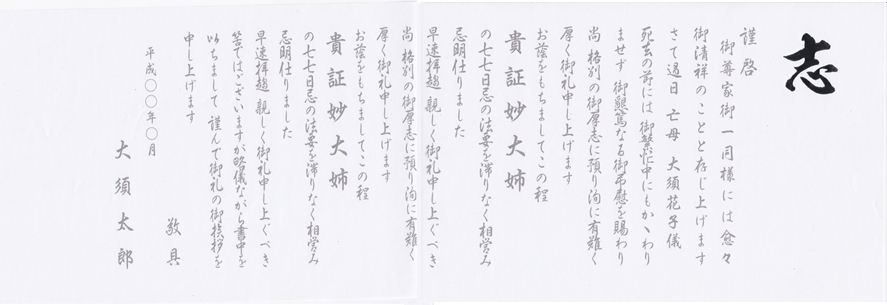 志
謹啓
御尊家御一同様には愈々
御清祥のことと存じ上げます
さて過日 亡母 大須花子儀
死去の節には 御繁忙中にもかゝわり
ませず 御懇篤なる御弔慰を賜わり
尚 格別の御厚志に預り洵に有難く
厚く御礼申し上げます
お蔭をもちましてこの程
貴証妙大姉
の七七日忌の法要を滞りなく相営み
忌明仕りました
早速拝趨 親しく御礼申し上ぐべき
尚 格別の御厚志に預り洵に有難く
厚く御礼申し上げます
お蔭をもちましてこの程
貴証妙大姉
の七七日忌の法要を滞りなく相営み
忌明仕りました
早速拝趨 親しく御礼申し上ぐべき
筈でほございますが略儀ながら書中を
以ちまして 謹んで御礼の御挨拶を
申し上げます
敬具
平成〇〇年〇月
大須太郎